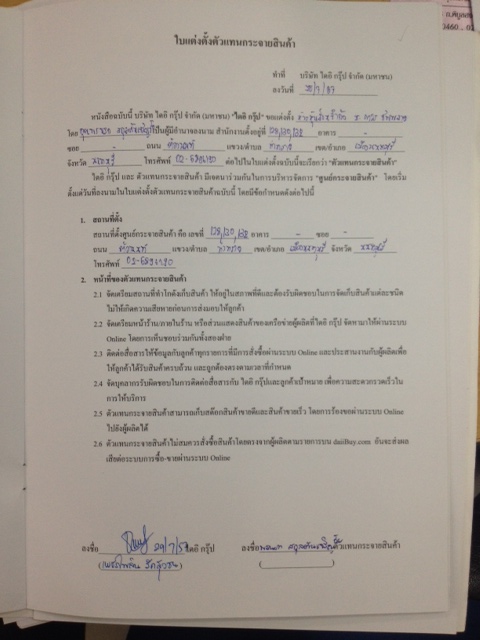 ถ.พิบูลสง
0460.. 02
ใบแต่งตั้งตัวแทนกระจายสินค้า
ทำที่ บริษัท ไดอิ กรุ๊ป จำกัด (มหาชน)
ลงวันที่
หนังสือฉบับนี้ บริษัท ไดอิ กรุ๊ป จำกัด (มหาชน) "ไดอิ กรุ๊ป" ขอแต่งตั้ง
โดย เป็นผู้มีอำนาจลงนาม สำนักงานตั้งอยู่ที่ 128,130,132 อาคาร -
ซอย - ถนน แขวง/ตำบล เขต/อำเภอ
จังหวัด โทรศัพท์ ต่อไปในใบแต่งตั้งฉบับนี้จะเรียกว่า "ตัวแทนกระจายสินค้า"
ไดอิ กรุ๊ป และ ตัวแทนกระจายสินค้า มีเจตนาร่วมกันในการบริหารจัดการ "ศูนย์กระจายสินค้า" โดยเริ่ม
ตั้งแต่วันที่ลงนามในใบแต่งตั้งตัวแทนกระจายสินค้าฉบับนี้ โดยมีข้อกำหนดดังต่อไปนี้
1. สถานที่ตั้ง
สถานที่ตั้งศูนย์กระจายสินค้า คือ เลขที่ 128,130,132 อาคาร - ซอย -
ถนน แขวง/ตำบล เขต/อำเภอ จังหวัด
โทรศัพท์
2. หน้าที่ของตัวแทนกระจายสินค้า
2.1 จัดเตรียมสถานที่ทำโกดังเก็บสินค้า ให้อยู่ในสภาพที่ดีและต้องรับผิดชอบในการจัดเก็บสินค้าแต่ละชนิด
ไม่ให้เกิดความเสียหายก่อนการส่งมอบให้ลูกค้า
2.2 จัดเตรียมหน้าร้าน/ภายในร้าน หรือส่วนแสดงสินค้าของเครือข่ายผู้ผลิตที่ไดอิ กรุ๊ป จัดหามาให้ผ่านระบบ
Online โดยการเห็นชอบร่วมกันทั้งสองฝ่าย
2.3 ติดต่อสื่อสารให้ข้อมูลกับลูกค้าทุกรายการที่มีการสั่งซื้อผ่านระบบ Online และประสานงานกับผู้ผลิตเพื่อ
ให้ลูกค้าได้รับสินค้าครบถ้วน และถูกต้องตรงตามเวลาที่กำหนด
2.4 จัดบุคลากรรับผิดชอบในการติดต่อสื่อสารกับ ไดอิ กรุ๊ปและลูกค้าเป้าหมาย เพื่อความสะดวกรวดเร็วใน
การให้บริการ
2.5 ตัวแทนกระจายสินค้าสามารถเก็บสต็อกสินค้าขายดีและสินค้าขายเร็ว โดยการร้องขอผ่านระบบ Online
ไปยังผู้ผลิตได้
2.6 ตัวแทนกระจายสินค้าไม่สมควรสั่งซื้อสินค้าโดยตรงจากผู้ผลิตตามรายการบน daiiBuy.com อันจะส่งผล
เสียต่อระบบการซื้อ-ขายผ่านระบบ Online
ลงชื่อ 29/7/57 ไดอิ กรุ๊ป ลงชื่อ ตัวแทนกระจายสินค้า